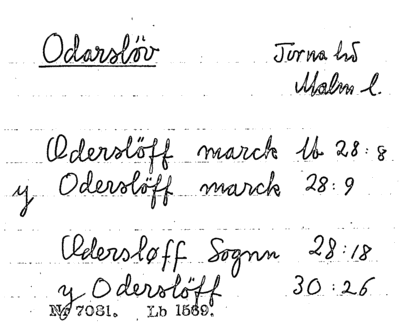 Odarslöv Torna hd
Malm l.
Oderslöff marck lb 28:8
y Oderslöff marck 28:9
Odersløff Sognn 28:18
y Oderslöff 30:26
No 7031. Lb 1569.